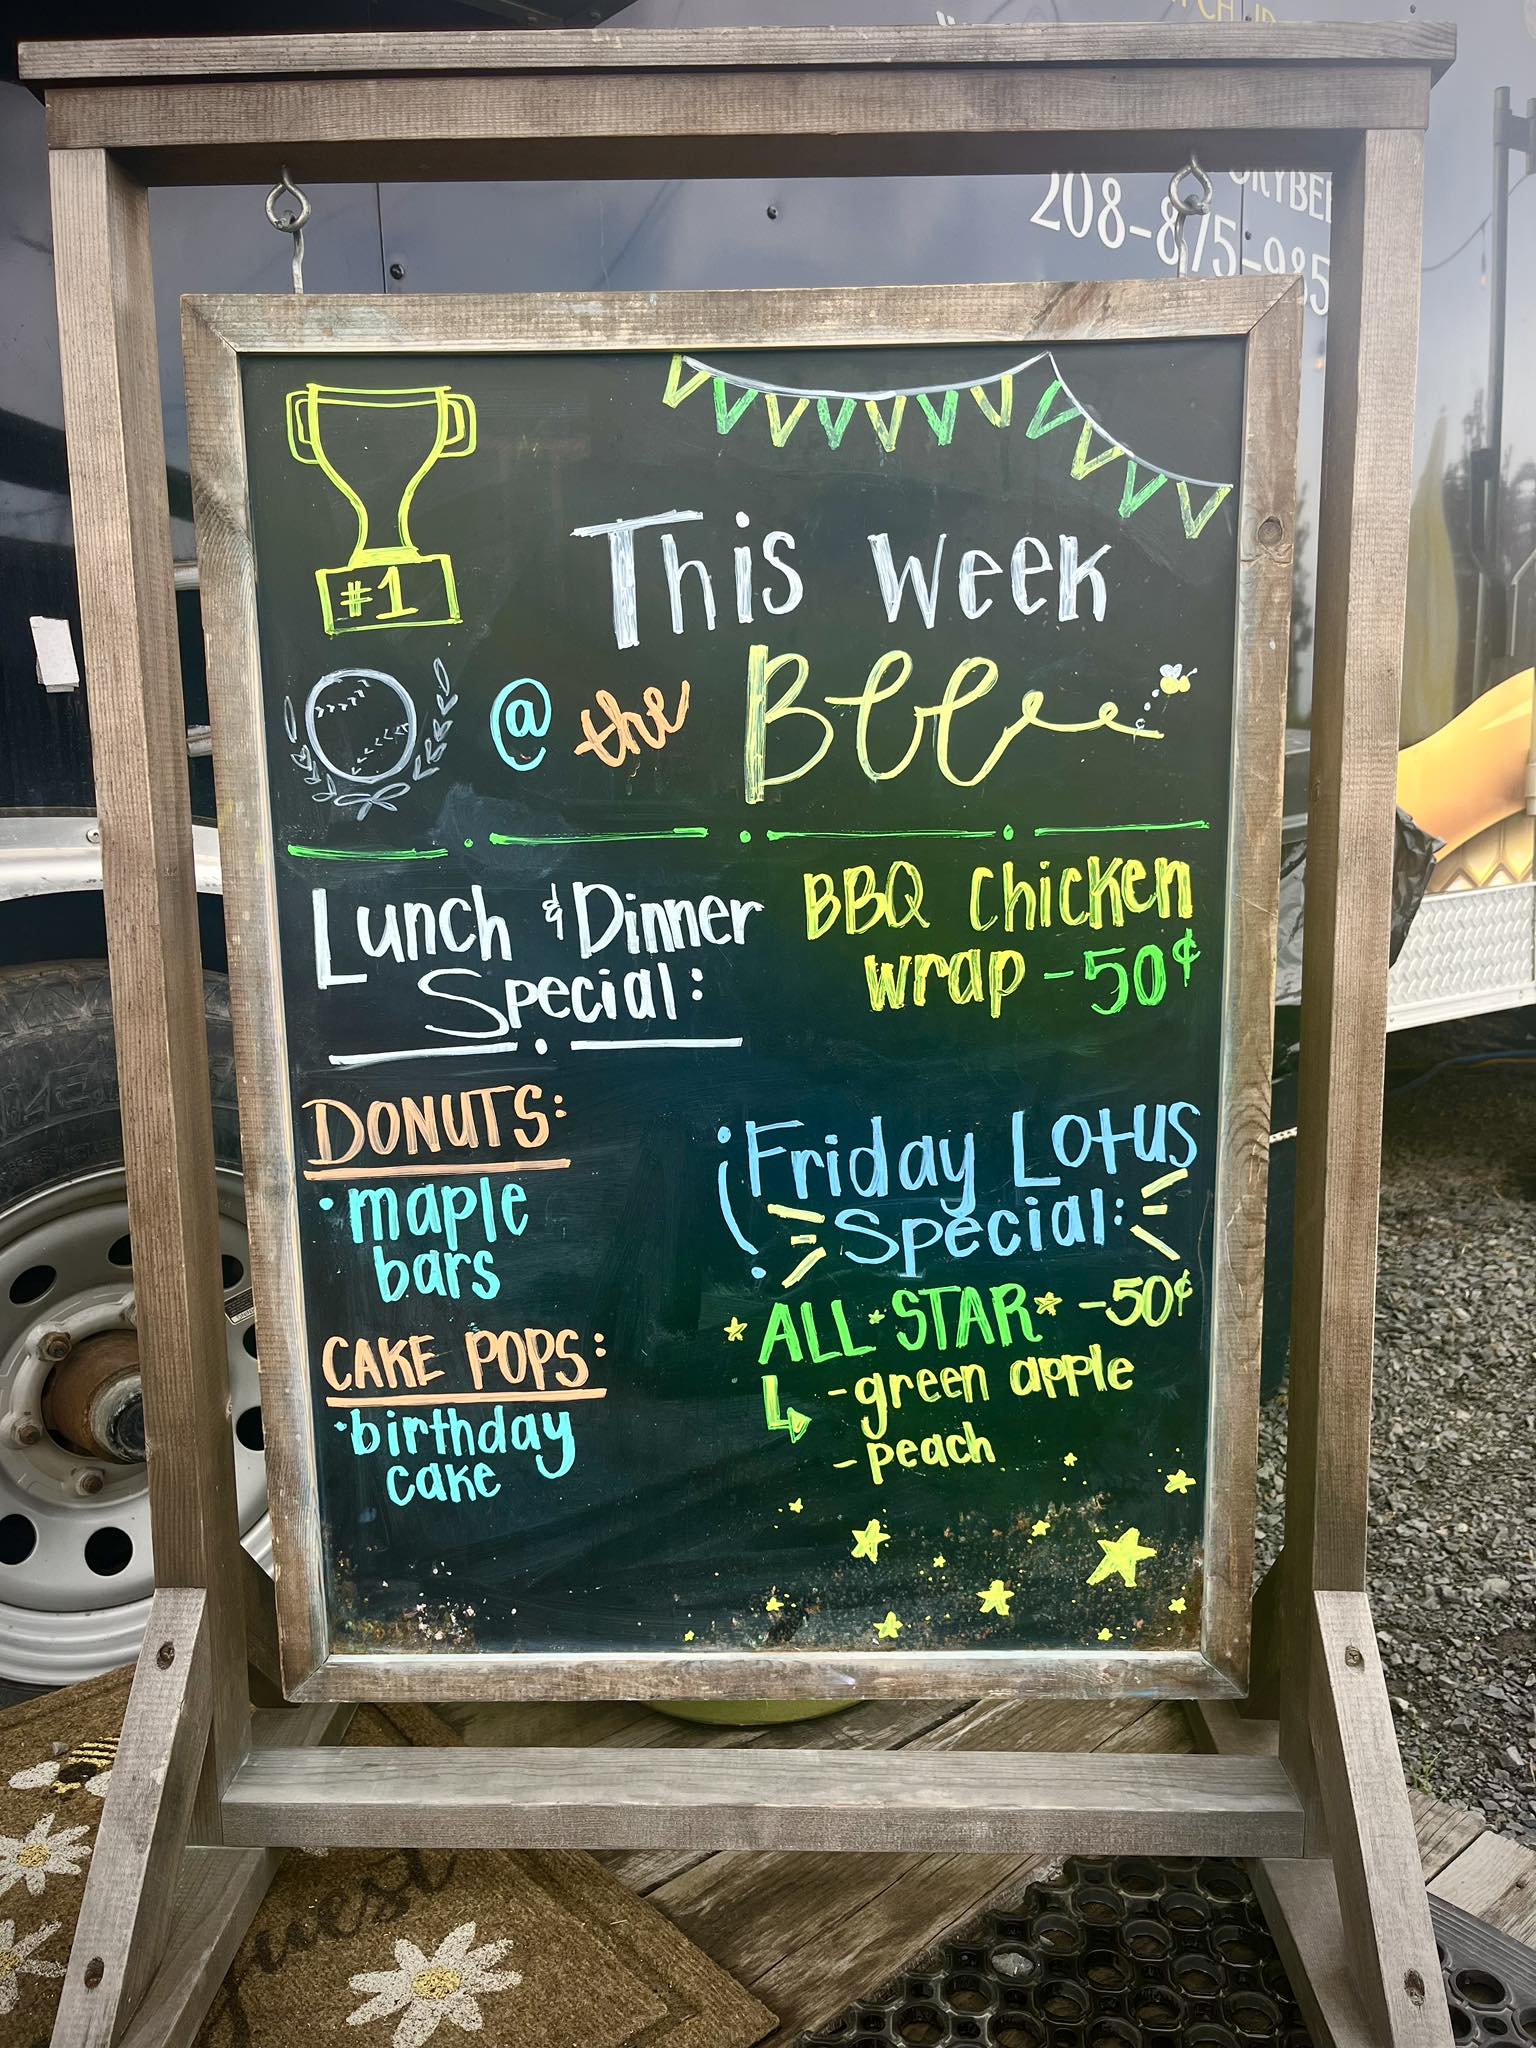 208-875-985
#1
This Week
@ the Bee
Lunch & Dinner
Special:
BBQ Chicken
wrap -50¢
DONUTS:
·maple
bars
CAKE POPS:
·birthday
cake
Friday Lotus
Special:
ALL·STAR -50¢
-green apple
-peach